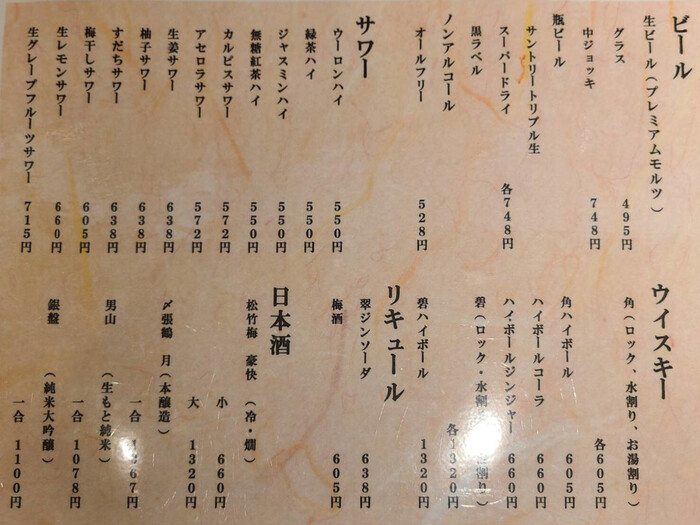 ビール
生ビール（プレミアムモルツ）
グラス　495円
中ジョッキ　748円
瓶ビール
サントリートリプル生
スーパードライ　各748円
黒ラベル
ノンアルコール
オールフリー　528円
サワー
ウーロンハイ　550円
緑茶ハイ　550円
ジャスミンハイ　550円
無糖紅茶ハイ　550円
カルピスサワー　572円
アセロラサワー　572円
生姜サワー　638円
柚子サワー　638円
すだちサワー　638円
梅干しサワー　605円
生レモンサワー　660円
生グレープフルーツサワー　715円
ウイスキー
角（ロック、水割り、お湯割り）
各605円
角ハイボール　605円
ハイボールコーラ　660円
ハイ・ボールジンジャー　660円
碧（ロック・水割 割り）
各1320円
碧ハイボール　1320円
リキュール
翠ジンソーダ　638円
梅酒　605円
日本酒
松竹梅　豪快　（冷・燗）
小　660円
大　1320円
〆張鶴　月（本醸造）
一合　1 67円
男山　（生もと純米）
一合　1078円
銀盤　（純米大吟醸）
一合　1100円